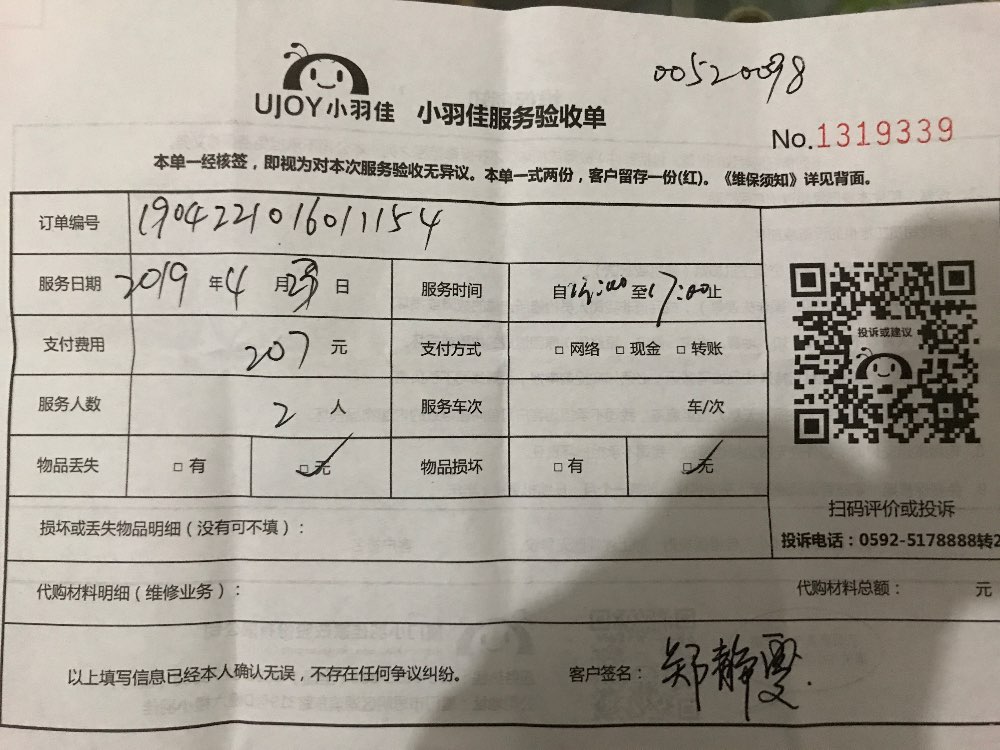 00520098
UJOY小羽佳 小羽佳服务验收单
No.1319339
本单一经核签，即视为对本次服务验收无异议。本单一式两份，客户留存一份(红)。《维保须知》详见背面。
订单编号 1904221016011154
服务日期 2019 年 4 月 日 服务时间 自 至 17:00 止
投诉或建议
支付费用 207 元 支付方式 □ 网络 □ 现金 □ 转账
服务人数 2 人 服务车次 车/次
物品丢失 □ 有 □ 无 物品损坏 □ 有 □ 无
扫码评价或投诉
损坏或丢失物品明细（没有可不填）：
投诉电话：0592-5178888转2
代购材料明细（维修业务）： 代购材料总额： 元
以上填写信息已经本人确认无误，不存在任何争议纠纷。 客户签名： 郑静雯